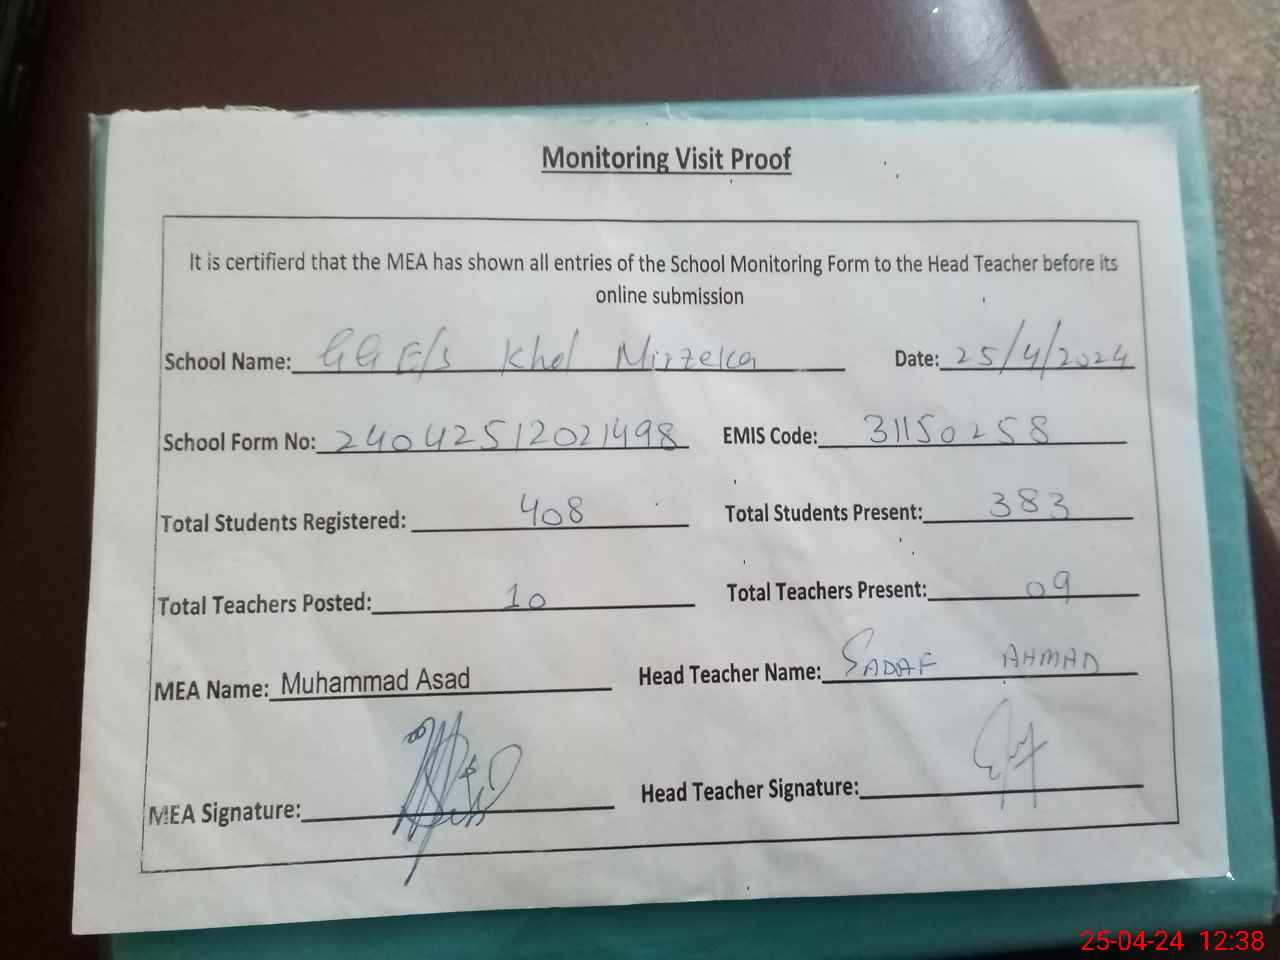 Monitoring Visit Proof
It is certifierd that the MEA has shown all entries of the School Monitoring Form to the Head Teacher before its
online submission
School Name: GGE/S Khol Mirzeka Date: 25/4/2024
School Form No: 24042512021498 EMIS Code: 31150258
Total Students Registered: 408 Total Students Present: 383
Total Teachers Posted: 10 Total Teachers Present: 09
MEA Name: Muhammad Asad Head Teacher Name: SADAF AHMAD
MEA Signature: Head Teacher Signature:
25-04-24 12:38